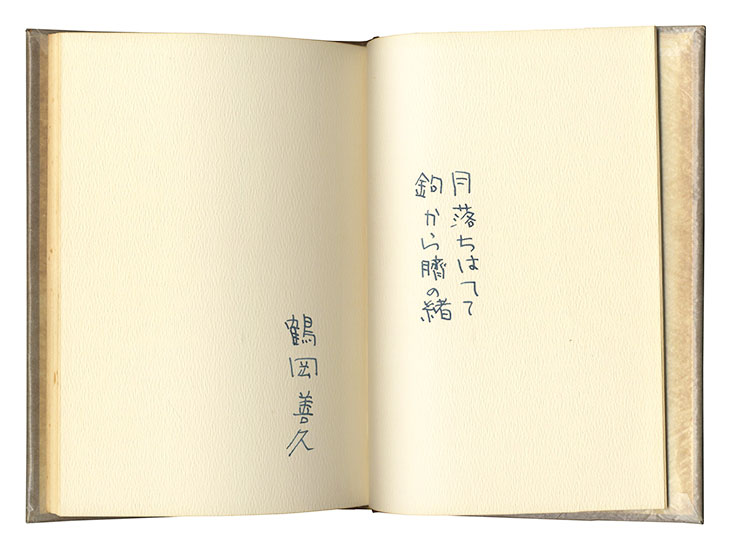 月落ちはてて
鉤から臍の緒
鶴岡善久